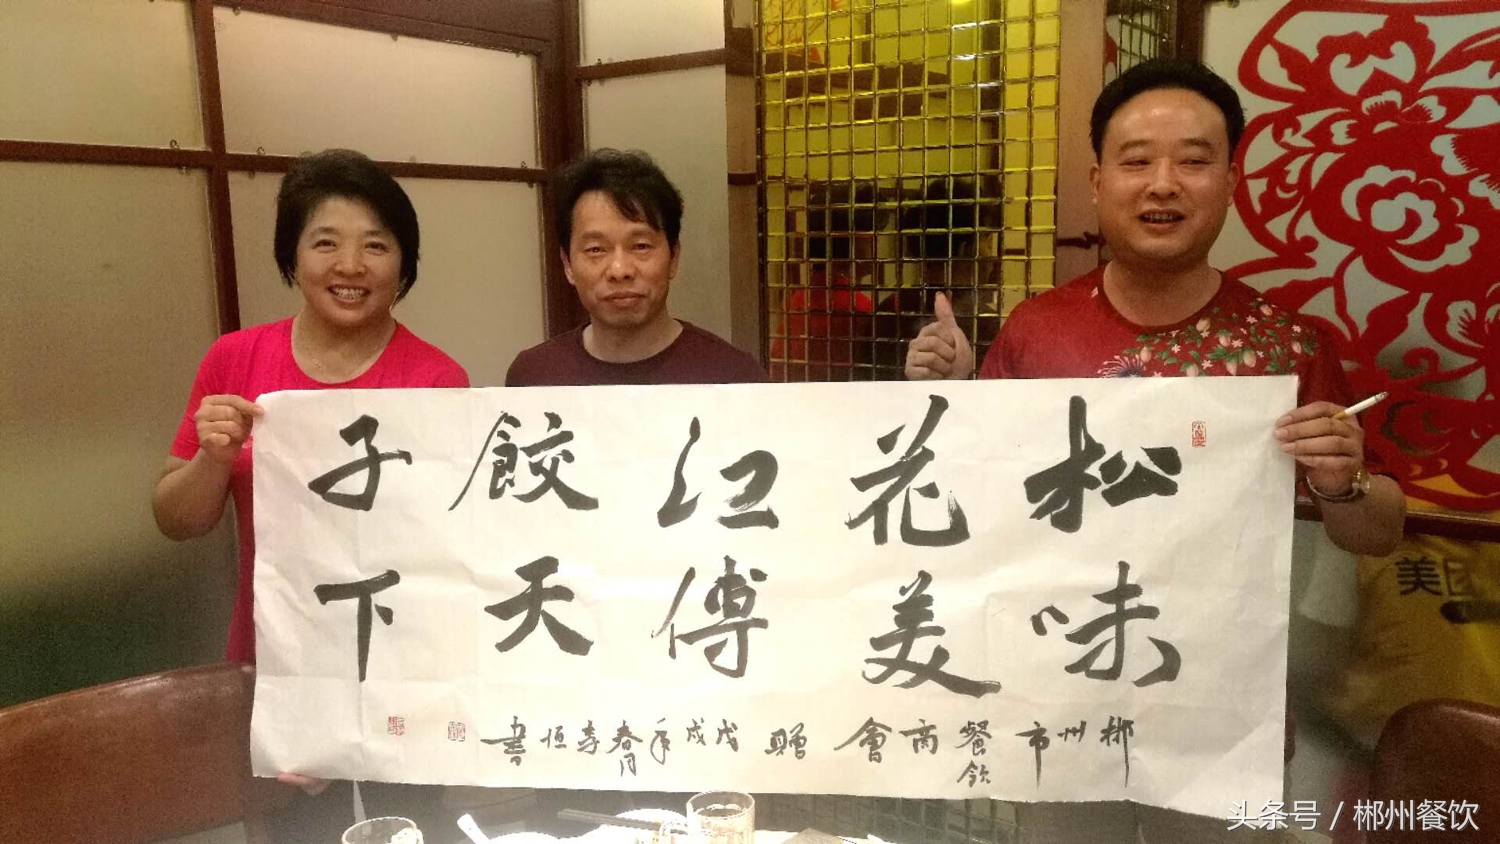 松花江餃子
味美傅天下
郴州市餐飲商會贈戊戌年春月恒書
美团
头条号 / 郴州餐饮